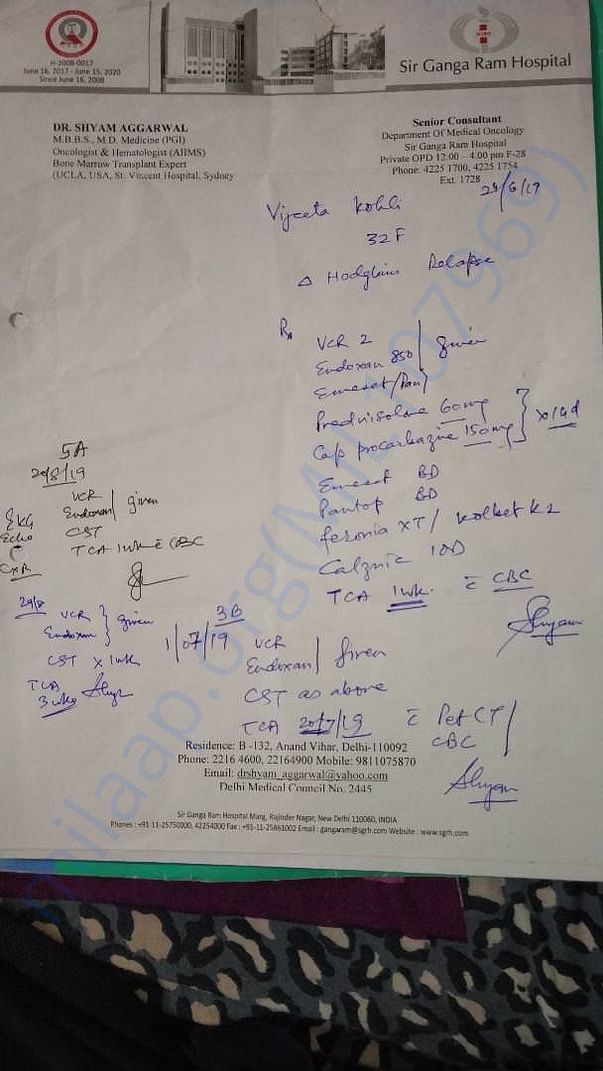 H-2008-0017
June 16, 2017 - June 15, 2020
Since June 16, 2008
SGRH
Sir Ganga Ram Hospital
DR. SHYAM AGGARWAL
M.B.B.S., M.D. Medicine (PGI)
Oncologist & Hematologist (AIIMS)
Bone Marrow Transplant Expert
(UCLA, USA, St. Vincent Hospital, Sydney
Senior Consultant
Department Of Medical Oncology
Sir Ganga Ram Hospital
Private OPD 12:00 - 4.00 pm F-28
Phone: 4225 1700, 4225 1754
Ext. 1728
/6/19
Vijeeta Kohli
32 F
Δ Hodgkins Relapse
Rx
VCR 2
Endoxan 850 | given
Emeset/Pan
Prednisolone 60mg
Cap procarbazine 150mg } x 14d
Emeset BD
Pantop BD
feronia XT / Kolket K2
Calznic 10D
TCA 1wk. c̄ CBC
Shyam
5A
20/8/19
VCR
Endoxan | given
CST
TCA 1wk c̄ CBC
EKG
Echo
CXR
29/8 VCR
Endoxan } given
CST x 1wk
TCA
3 wks
3B
1/07/19 VCR
Endoxan | given
CST as above
TCA 20/7/19 c̄ Pet CT
CBC
Shyam
Residence: B -132, Anand Vihar, Delhi-110092
Phone: 2216 4600, 22164900 Mobile: 9811075870
Email: drshyam_aggarwal@yahoo.com
Delhi Medical Council No. 2445
Sir Ganga Ram Hospital Marg, Rajinder Nagar, New Delhi 110060, INDIA
Phones : +91-11-25750000, 42254000 Fax : +91-11-25861002 Email : gangaram@sgrh.com Website : www.sgrh.com